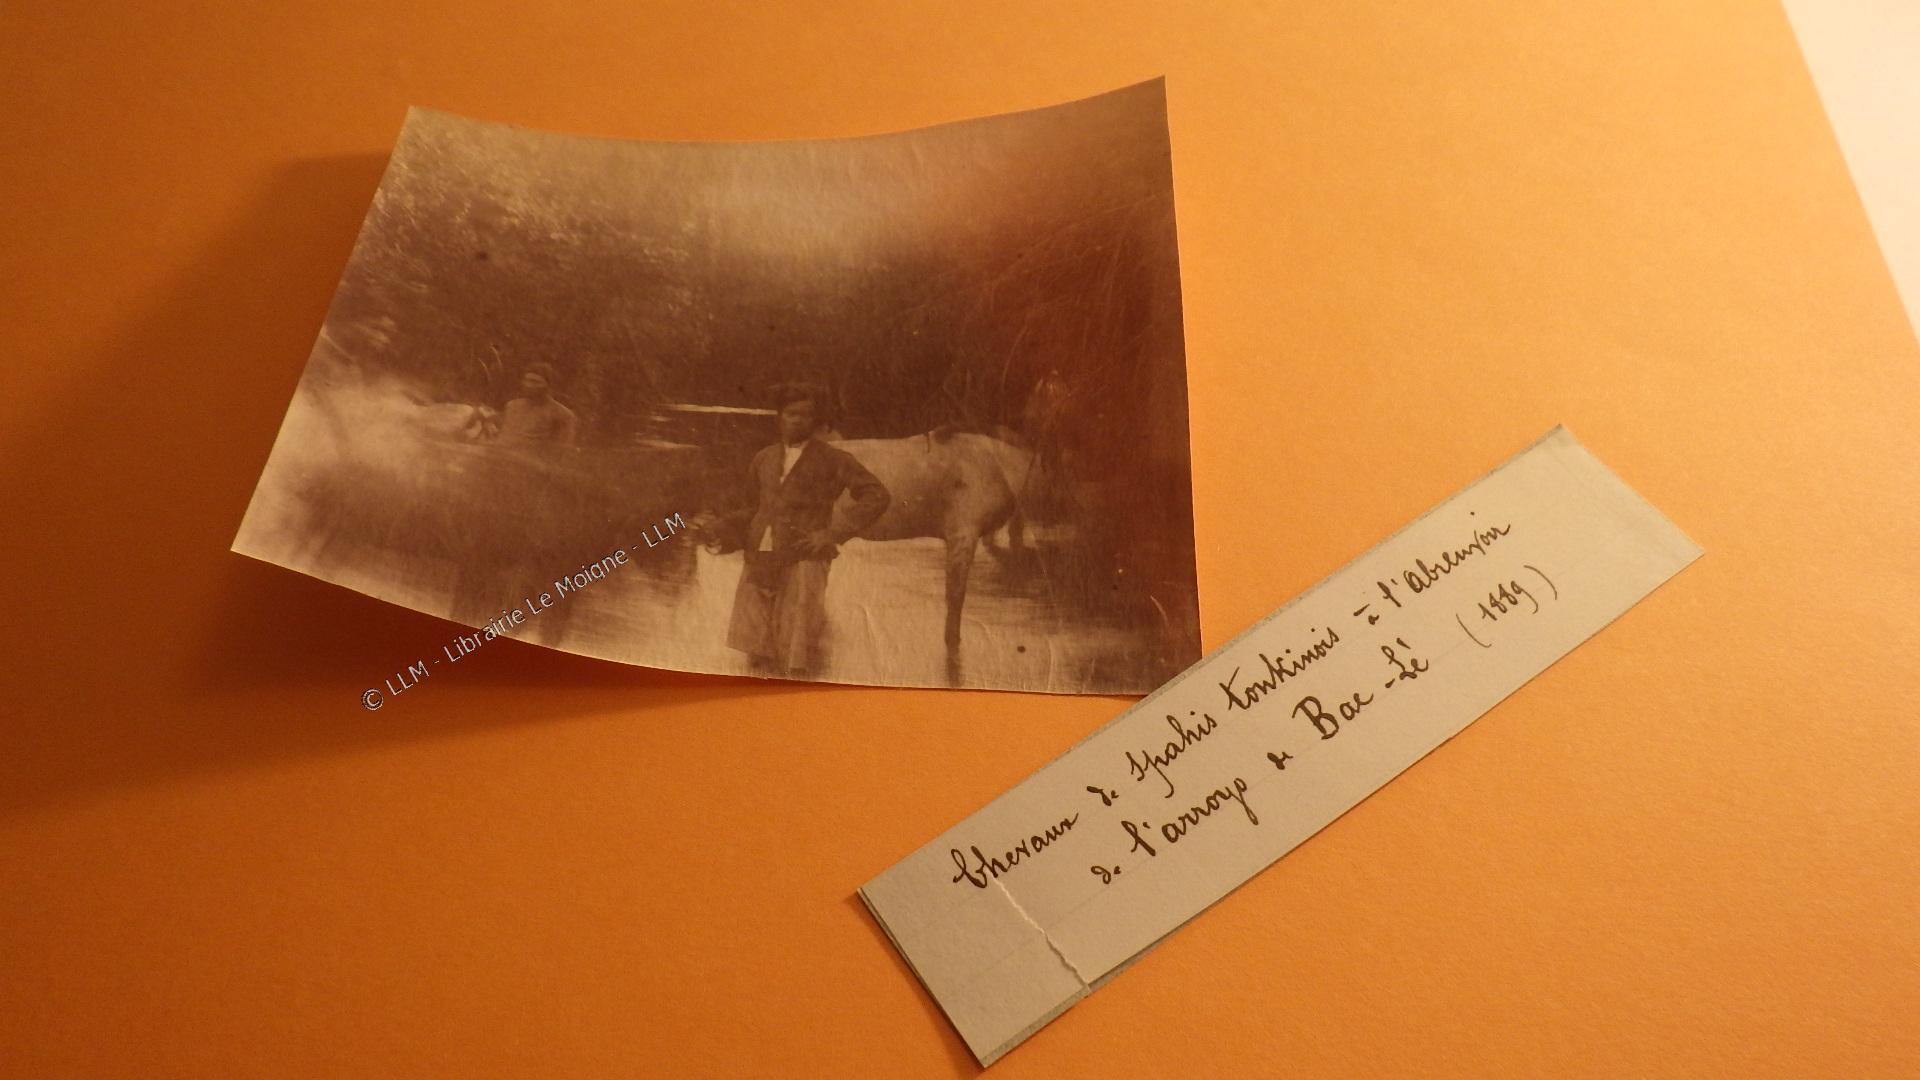 © LLM - Librairie Le Moigne - LLM
Chevaux de spahis tonkinois à l'abreuvoir
de l'arroyo de Bac-Lé (1889)